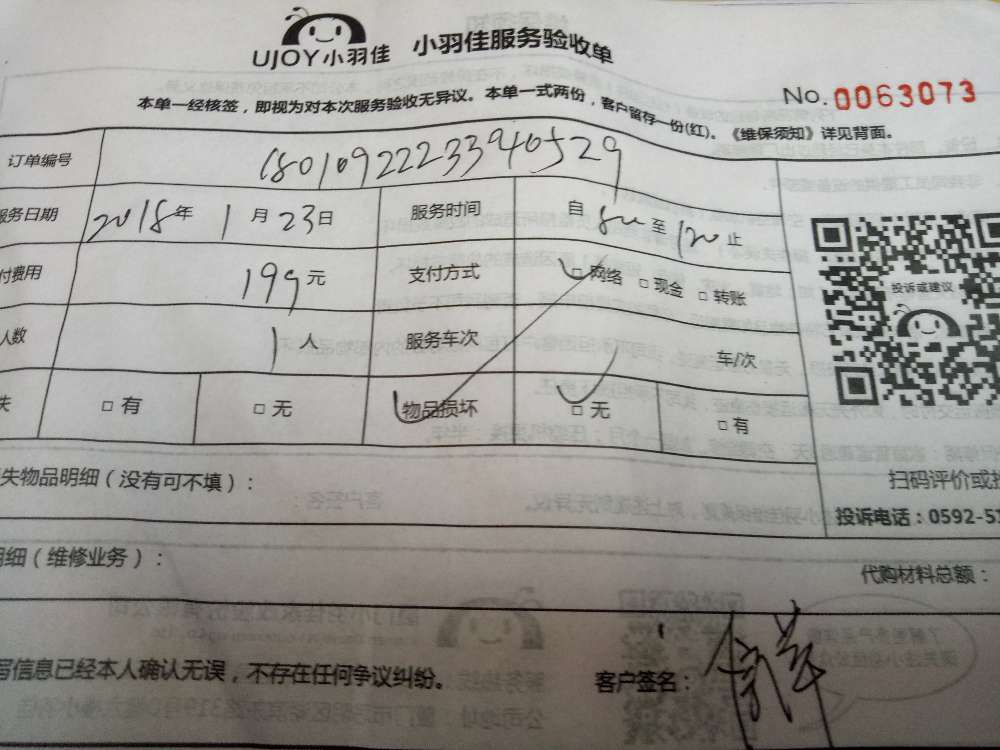 UJOY小羽佳 小羽佳服务验收单
No.0063073
本单一经核签，即视为对本次服务验收无异议。本单一式两份，客户留存一份(红)。《维保须知》详见背面。
订单编号 68010922233940529
服务日期 2018年1月23日 服务时间 自 800 至 1200 止
付费用 199元 支付方式 □网络 □现金 □转账
人数 1人 服务车次 车/次
失 □有 □无 物品损坏 □无 □有
投诉或建议
失物品明细（没有可不填）：
扫码评价或投
投诉电话：0592-51
明细（维修业务）：
代购材料总额：
写信息已经本人确认无误，不存在任何争议纠纷。
客户签名：